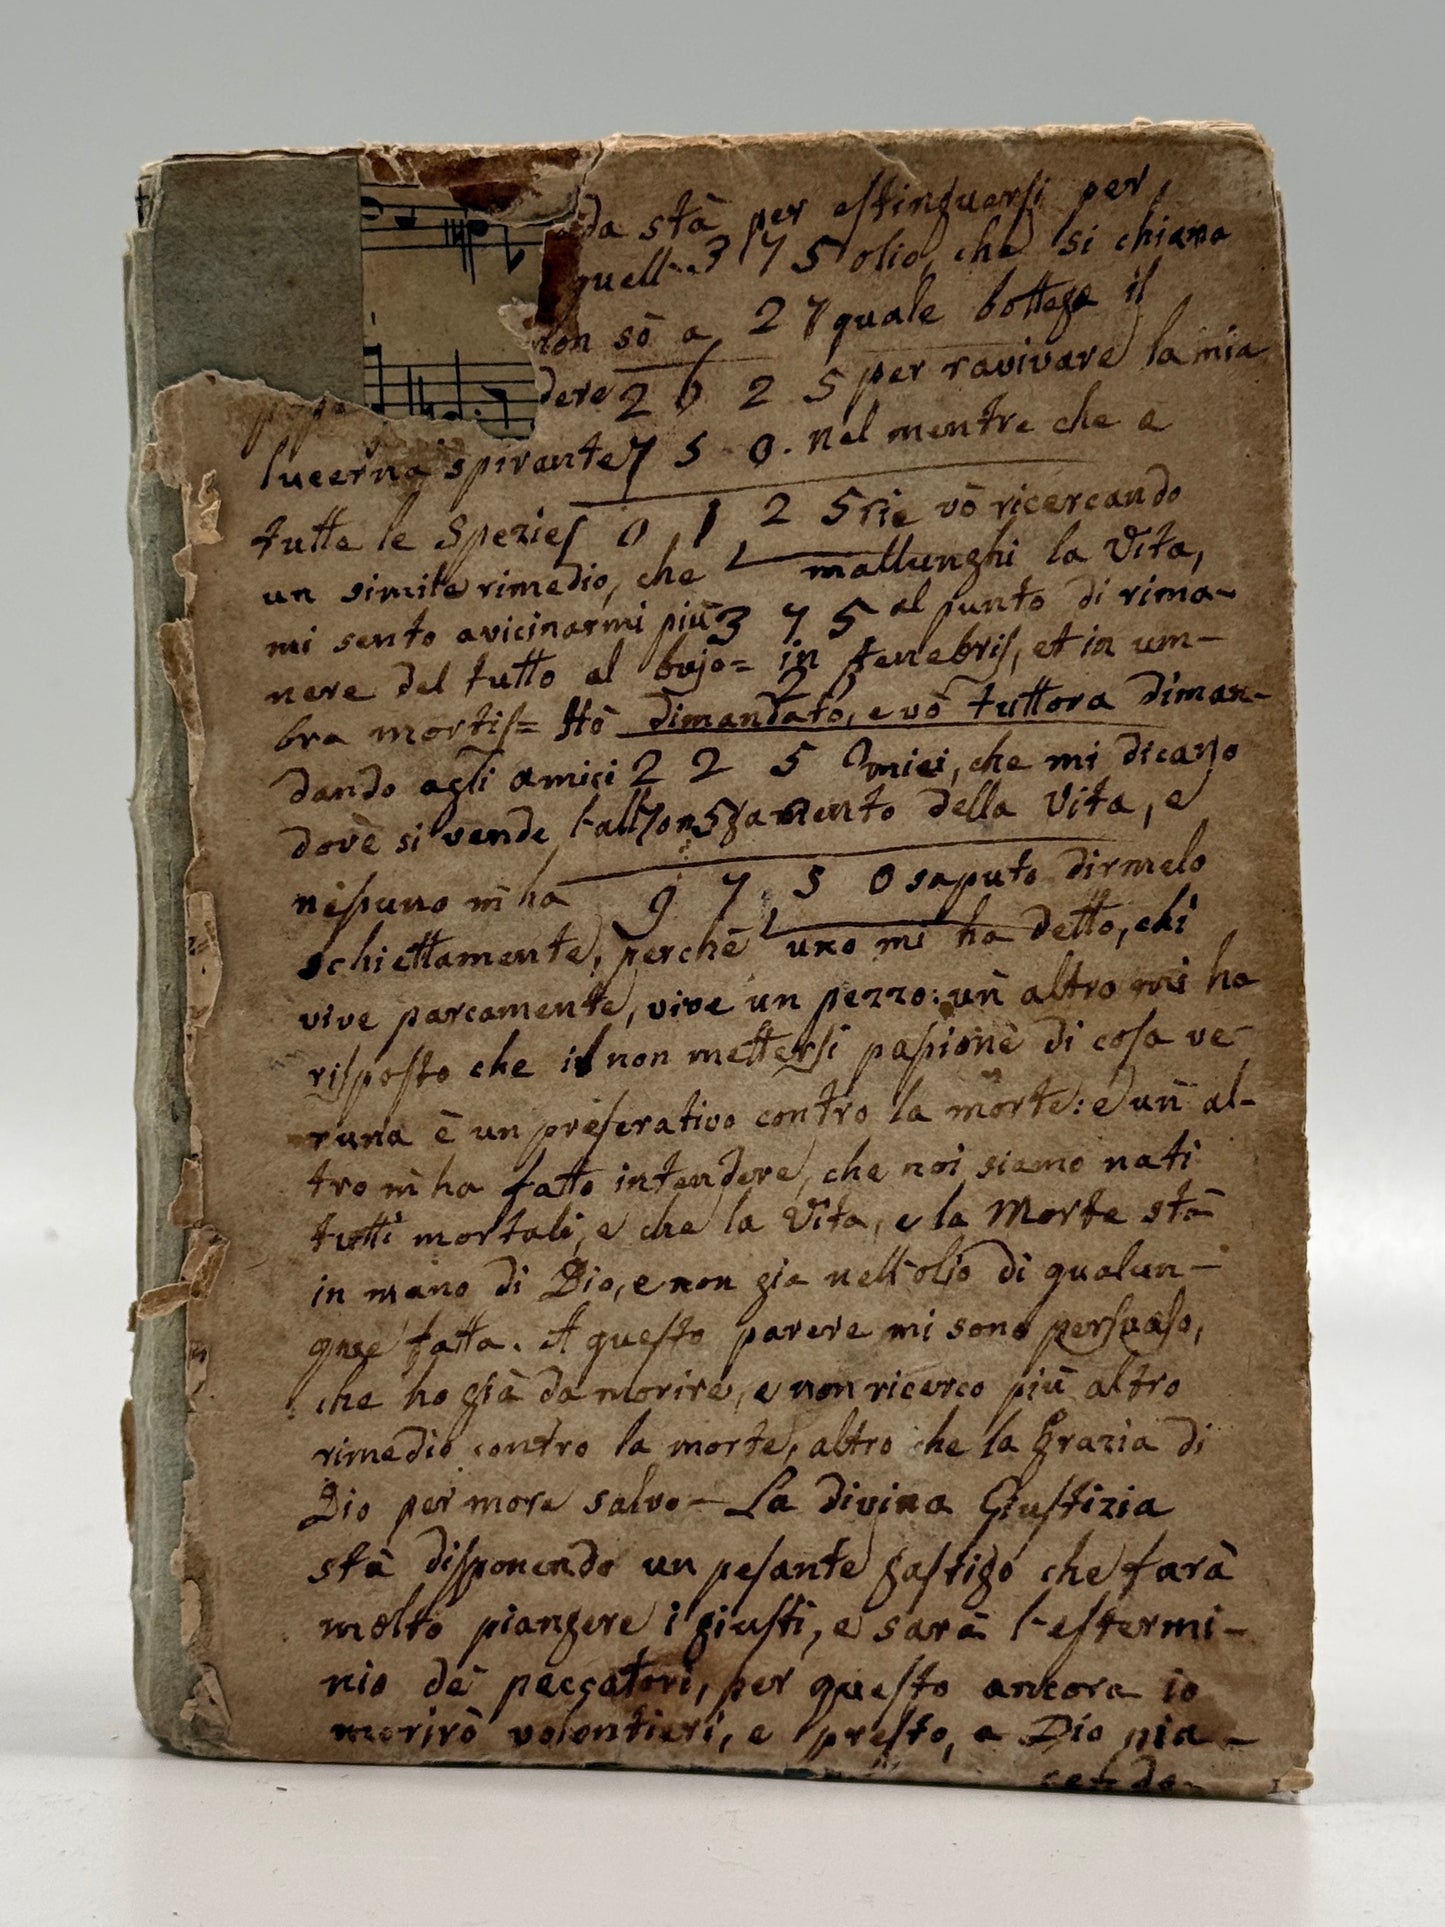 da stà per estinguersi per
quell... 3 7 5 olio, che si chiama
Non sò a 2 7 quale bottega il
dere 2 6 2 5 per ravivare la mia
lucerna spirante 7 5 0. Nel mentre che a
tutte le Spezies 0 1 2 5 rie vò ricercando
un simile rimedio, che mallunghi la Vita,
mi sento avicinarmi più 3 7 5 al punto di rima-
nere del tutto al bujo= in tenebris, et in um-
bra mortis= Hò dimandato, e vò tuttora diman-
dando agli amici 2 2 5 miei, che mi dicano
dovè si vende l'allongamento della Vita, e
nesuno m'ha 9 7 5 0 saputo dirmelo
schiettamente, perchè uno mi ha detto, chi
vive parcamente, vive un pezzo: un altro mi ha
risposto che il non mettersi pasione di cosa ve-
runa è un preserativo contro la morte: e un al-
tro m'ha fatto intendere, che noi siamo nati
tutti mortali, e che la Vita, e la Morte stà
in mano di Dio, e non gia nell'olio di qualun-
que fatta. A questo parere mi sono persuaso,
che ho già da morire, e non ricerco più altro
rimedio contro la morte, altro che la Grazia di
Dio per more salvo - La divina Giustizia
stà disponendo un pesante gastigo che farà
molto piangere i giusti, e sarà l'estermi-
nio de' peccatori, per questo ancora io
morirò volontieri, e presto, a Dio pia-
cendo-